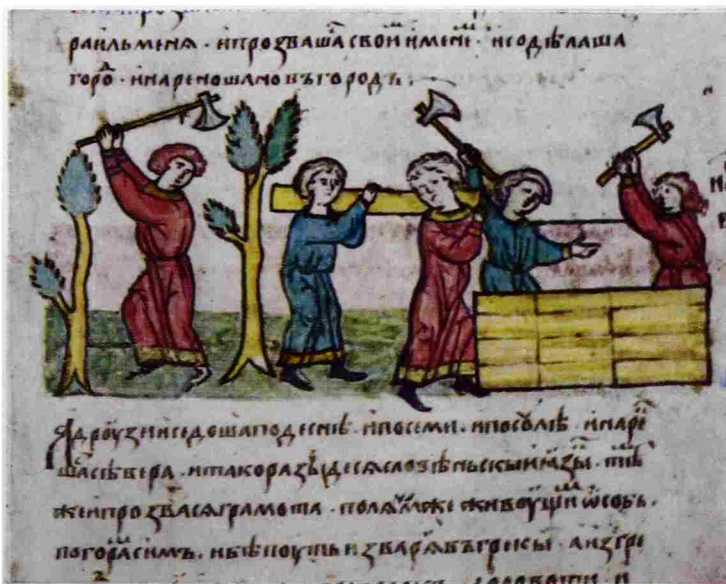 раильменя · ипрозвашасвоиⷨимене · исодѣлаша
гороⷣ · инарекошановъгородъ .
Ядроузииседошаподеснѣ · ипосеми · ипосоулѣ · инареⷦ
шасѣвера · итакоразыдесясловѣньскыиꙗзыⷦ · тѣⷨ
жеипрозвасяграмота · поляⷨже живоущиⷨ ѡсобь ·
погораⷨсимъ . ибѣпоутьизварягъвъгрекы · аизгре